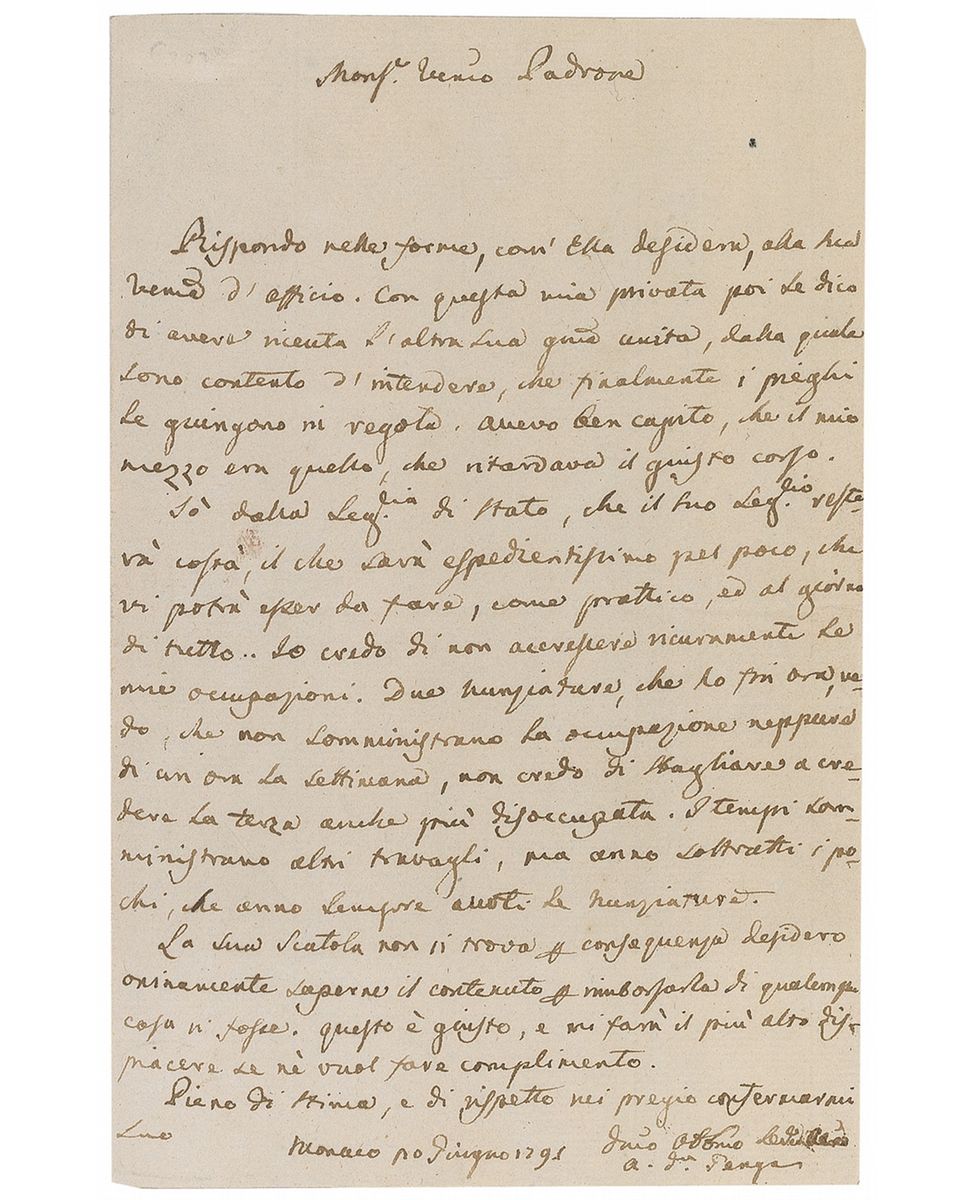 Monsr. Venmo Padrone
Rispondo nelle forme, com' Ella desidera, alla sua
venma d' officio. Con questa mia privata poi Le dico
di avere riceuta l' altra sua gma unita, dalla quale
sono contento d' intendere, che finalmente i pieghi
Le giungono in regola. Avevo ben capito, che il mio
mezzo era quello, che ritardava il giusto corso.
Sò dalla Segria di Stato, che il suo Segrio reste-
rà costà, il che sarà espedientissimo pel poco, che
vi potrà esser da fare, come prattico, ed al giorno
di tutto.. Io credo di non accrescere sicuramente Le
mie occupazioni. Due Nunziature, che ho fin ora, ve-
do, che non somministrano La occupazione neppure
di un ora La settimana, non credo di sbagliare a cre-
dere La terza anche più disoccupata. I tempi som-
ministrano altri travagli, ma anno sottratti i po-
chi, che anno sempre avuti Le Nunziature.
La sua Scatola non si trova conseguenza desidero
oninamente saperne il contenuto rimborsarla di qualunque
cosa vi fosse. Questo è giusto, e mi farà il più alto dis-
piacere se nè vuol fare complimento.
Pieno di stima, e di rispetto mi pregio confermarmi
Suo
Monaco 10 Giugno 1795 Dmo Obblmo
A. Da Genga